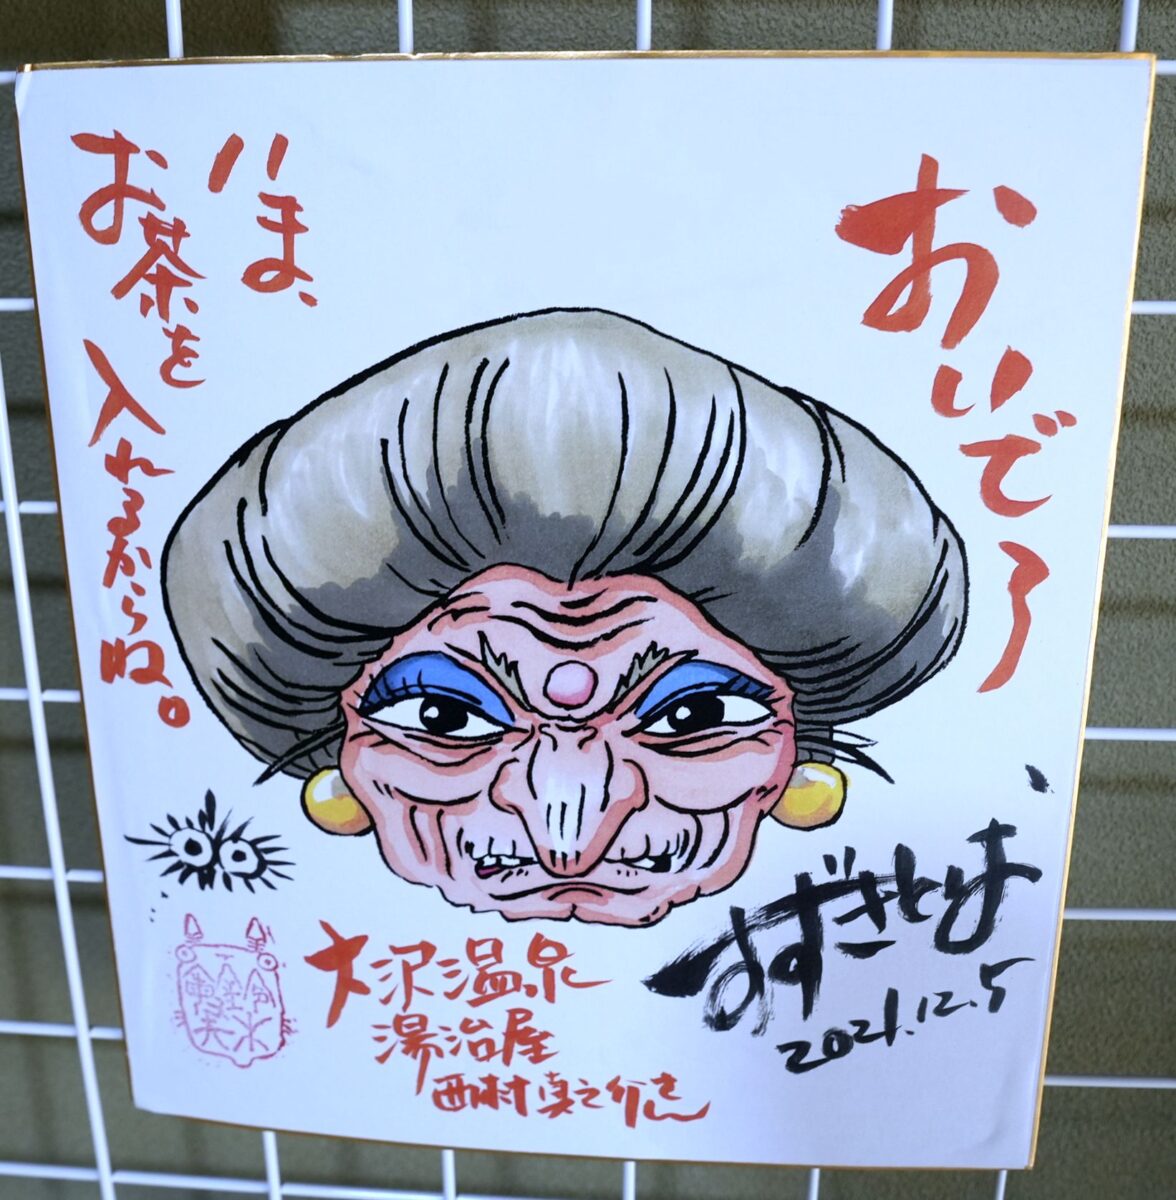 おいで〜
いま、
お茶を
入れるからね。
すずきとしお
2021.12.5
大沢温泉
湯治屋
西村真之介さん